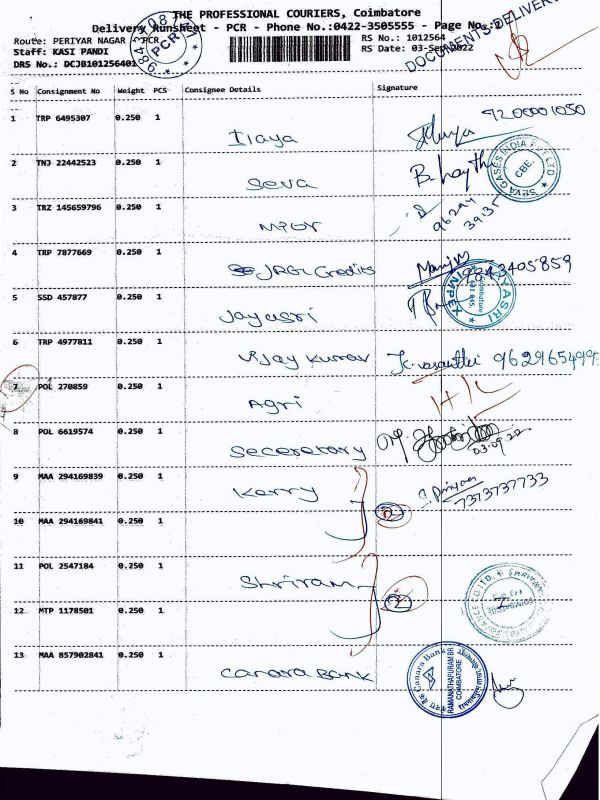 THE PROFESSIONAL COURIERS, Coimbatore
Delivery Runsheet - PCR - Phone No.:0422-3505555 - Page No.:1
Route: PERIYAR NAGAR - PCR
RS No.: 1012564
Staff: KASI PANDI
RS Date: 03-Sep-2022
DRS No.: DCJB101256401
PCR
DOCUMENTS DELIVER
S No Consignment No Weight PCS Consignee Details Signature
1 TRP 6495307 0.250 1 Ilaya 9200001050
2 TNJ 22442523 0.250 1 Seva
SEVA GASES INDIA PVT LTD CBE.
3 TRZ 145659796 0.250 1
4 TRP 7877669 0.250 1 JRGL Credits 9843405859
5 SSD 457877 0.250 1 Jayasri
JAYASRI IMPEX Coimbatore
6 TRP 4977811 0.250 1 Vijay Kumar K. Vasanthi
7 POL 270859 0.250 1 Agri
8 POL 6619574 0.250 1 Seceretory
03.09.22
9 MAA 294169839 0.250 1 Kerry 7373737733
10 MAA 294169841 0.250 1 2
11 POL 2547184 0.250 1 Shriram
12 MTP 1178501 0.250 1 2
13 MAA 857902841 0.250 1 Canara Bank
Canara Bank RAMANATHAPURAM BR. COIMBATORE